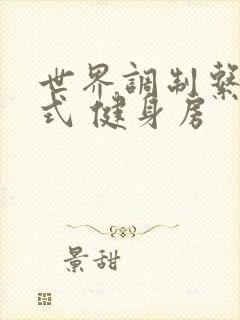 世界調制繫
式 健身房
景甜